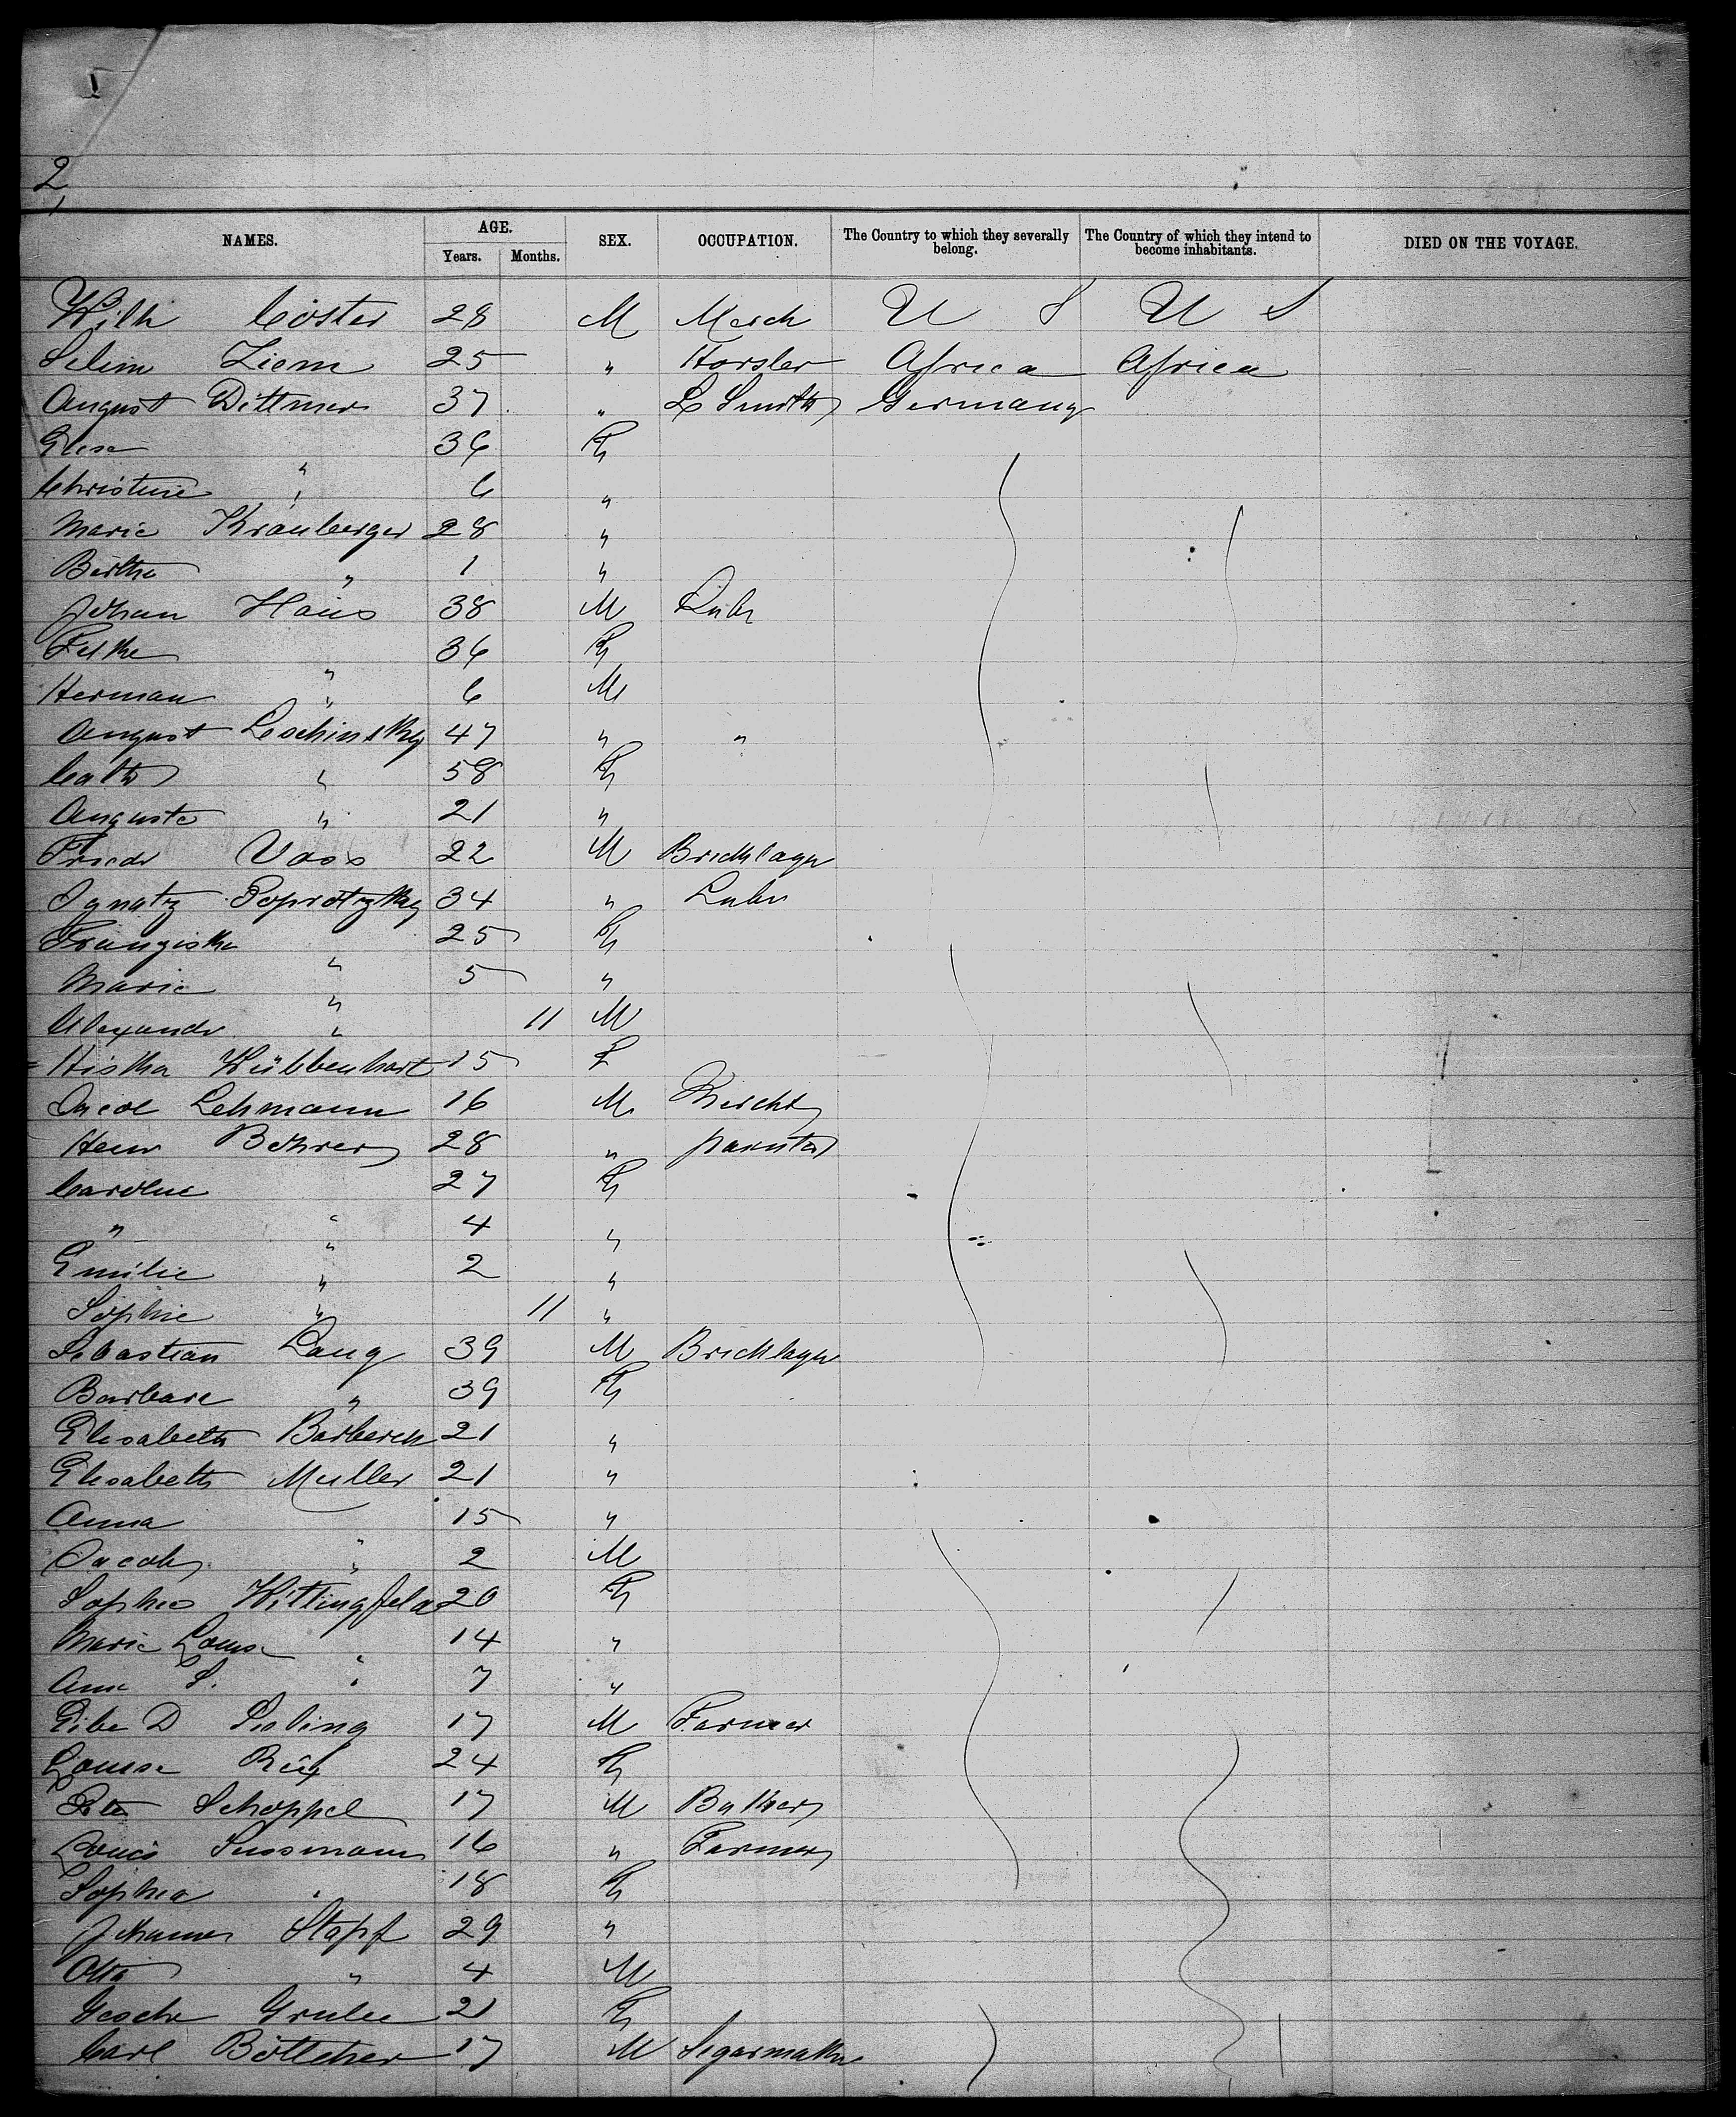 2
NAMES. AGE. Years. Months. SEX. OCCUPATION. The Country to which they severally belong. The Country of which they intend to become inhabitants. DIED ON THE VOYAGE.
Wilh Cöster 28 M Merch U S U S
Selim Ziem 25 " Horsler Africa Africa
August Dittmer 37 " L Smith Germany
Gese " 36 F
Christine " 6 "
Marie Kranberger 28 "
Bertha " 1 "
Johan Haus 38 M Labr
Felke " 36 F
Herman " 6 M
August Leschinsky 47 " "
Cath " 58 F
Auguste " 21 "
Friedr Voss 22 M Bricklayer
Ignatz Poprotzky 34 " Labr
Franziska " 25 F
Marie " 5 "
Alexandr " 11 M
Hiska Wübbenhorst 15 F
Jacob Lehmann 16 M
Henr Bohrer 28 " painter
Caroline " 27 F
" " 4 "
Emilie " 2 "
Sophie " 11 "
Sebastian Lang 39 M Bricklayer
Barbara " 39 F
Elisabeth 21 "
Elisabeth Muller 21 "
Anna " 15 "
Jacob " 2 M
Sophie Wittingfeld 20 F
Marie Louise " 14 "
Anna S. " 7 "
D Sieling 17 M Farmer
Louise 24 F
Peter Schoppel 17 M Baker
Louis Sussmann 16 " Farmer
Sophia " 18 F
Johanne Stapf 29 "
Otto " 4 M
Gesche Grulee 21 F
Carl Böttcher 17 M Segarmaker